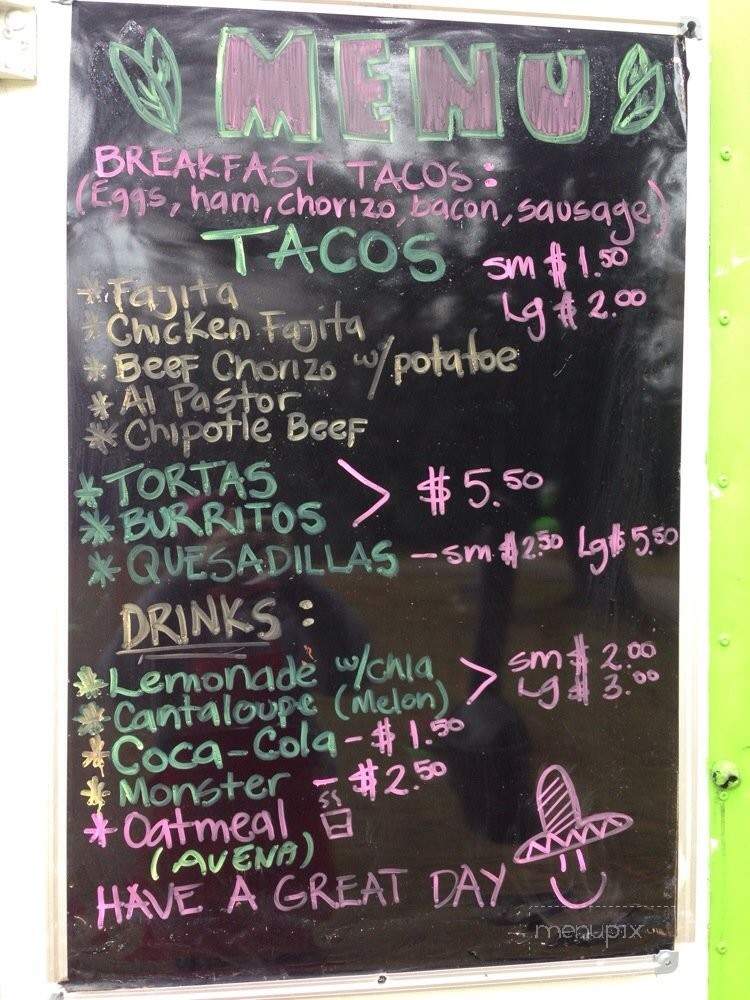 MENU
BREAKFAST TACOS:
(Eggs, ham, chorizo, bacon, sausage)
TACOS
sm $1.50
Lg $2.00
* Fajita
* Chicken Fajita
* Beef Chorizo w/potatoe
* Al Pastor
* Chipotle Beef
* TORTAS
* BURRITOS
> $5.50
* QUESADILLAS - sm $2.50 Lg $5.50
DRINKS:
* Lemonade w/chia
* Cantaloupe (Melon)
> sm $2.00
Lg $3.00
* Coca-Cola - $1.50
* Monster - $2.50
* Oatmeal
(AVENA)
HAVE A GREAT DAY
menupix